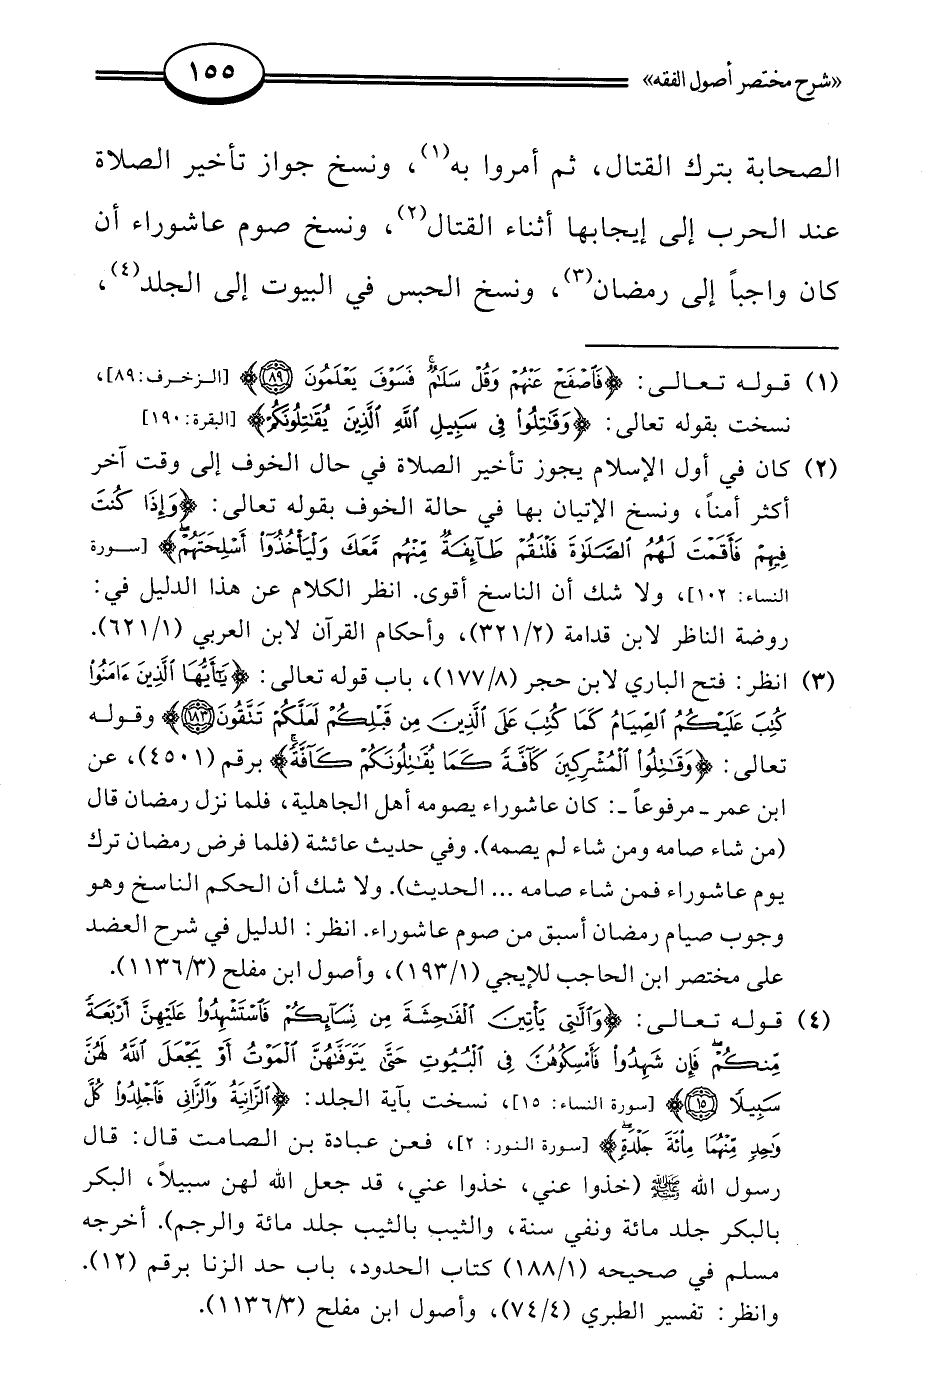 «شرح مختصر أصول الفقه»
١٥٥
الصحابة بترك القتال، ثم أمروا به(١)، ونسخ جواز تأخير الصلاة
عند الحرب إلى إيجابها أثناء القتال(٢)، ونسخ صوم عاشوراء أن
كان واجباً إلى رمضان(٣)، ونسخ الحبس في البيوت إلى الجلد(٤)،
(١) قوله تعالى: ﴿فَٱصْفَحْ عَنْهُمْ وَقُلْ سَلَٰمٌ ۚ فَسَوْفَ يَعْلَمُونَ ٨٩﴾ [الزخرف: ٨٩]،
نسخت بقوله تعالى: ﴿وَقَٰتِلُوا۟ فِى سَبِيلِ ٱللَّهِ ٱلَّذِينَ يُقَٰتِلُونَكُمْ﴾ [البقرة: ١٩٠]
(٢) كان في أول الإسلام يجوز تأخير الصلاة في حال الخوف إلى وقت آخر
أكثر أمناً، ونسخ الإتيان بها في حالة الخوف بقوله تعالى: ﴿وَإِذَا كُنتَ
فِيهِمْ فَأَقَمْتَ لَهُمُ ٱلصَّلَوٰةَ فَلْتَقُمْ طَآئِفَةٌ مِّنْهُم مَّعَكَ وَلْيَأْخُذُوٓا۟ أَسْلِحَتَهُمْ ۖ﴾ [سورة
النساء: ١٠٢]، ولا شك أن الناسخ أقوى. انظر الكلام عن هذا الدليل في:
روضة الناظر لابن قدامة (٣٢١/٢)، وأحكام القرآن لابن العربي (٦٢١/١).
(٣) انظر: فتح الباري لابن حجر (١٧٧/٨)، باب قوله تعالى: ﴿يَٰٓأَيُّهَا ٱلَّذِينَ ءَامَنُوا۟
كُتِبَ عَلَيْكُمُ ٱلصِّيَامُ كَمَا كُتِبَ عَلَى ٱلَّذِينَ مِن قَبْلِكُمْ لَعَلَّكُمْ تَتَّقُونَ ١٨٣﴾ وقوله
تعالى: ﴿وَقَٰتِلُوا۟ ٱلْمُشْرِكِينَ كَآفَّةً كَمَا يُقَٰتِلُونَكُمْ كَآفَّةً ۚ﴾ برقم (٤٥٠١)، عن
ابن عمر ـ مرفوعاً ـ: كان عاشوراء يصومه أهل الجاهلية، فلما نزل رمضان قال
(من شاء صامه ومن شاء لم يصمه). وفي حديث عائشة (فلما فرض رمضان ترك
يوم عاشوراء فمن شاء صامه ... الحديث). ولا شك أن الحكم الناسخ وهو
وجوب صيام رمضان أسبق من صوم عاشوراء. انظر: الدليل في شرح العضد
على مختصر ابن الحاجب للإيجي (١٩٣/١)، وأصول ابن مفلح (١١٣٦/٣).
(٤) قوله تعالى: ﴿وَٱلَّٰتِى يَأْتِينَ ٱلْفَٰحِشَةَ مِن نِّسَآئِكُمْ فَٱسْتَشْهِدُوا۟ عَلَيْهِنَّ أَرْبَعَةً
مِّنكُمْ ۖ فَإِن شَهِدُوا۟ فَأَمْسِكُوهُنَّ فِى ٱلْبُيُوتِ حَتَّىٰ يَتَوَفَّىٰهُنَّ ٱلْمَوْتُ أَوْ يَجْعَلَ ٱللَّهُ لَهُنَّ
سَبِيلًا ١٥﴾ [سورة النساء: ١٥]، نسخت بآية الجلد: ﴿ٱلزَّانِيَةُ وَٱلزَّانِى فَٱجْلِدُوا۟ كُلَّ
وَٰحِدٍ مِّنْهُمَا مِا۟ئَةَ جَلْدَةٍ ۖ﴾ [سورة النور: ٢]، فعن عبادة بن الصامت قال: قال
رسول الله ﷺ (خذوا عني، خذوا عني، قد جعل الله لهن سبيلاً، البكر
بالبكر جلد مائة ونفي سنة، والثيب بالثيب جلد مائة والرجم). أخرجه
مسلم في صحيحه (١٨٨/١) كتاب الحدود، باب حد الزنا برقم (١٢).
وانظر: تفسير الطبري (٧٤/٤)، وأصول ابن مفلح (١١٣٦/٣).